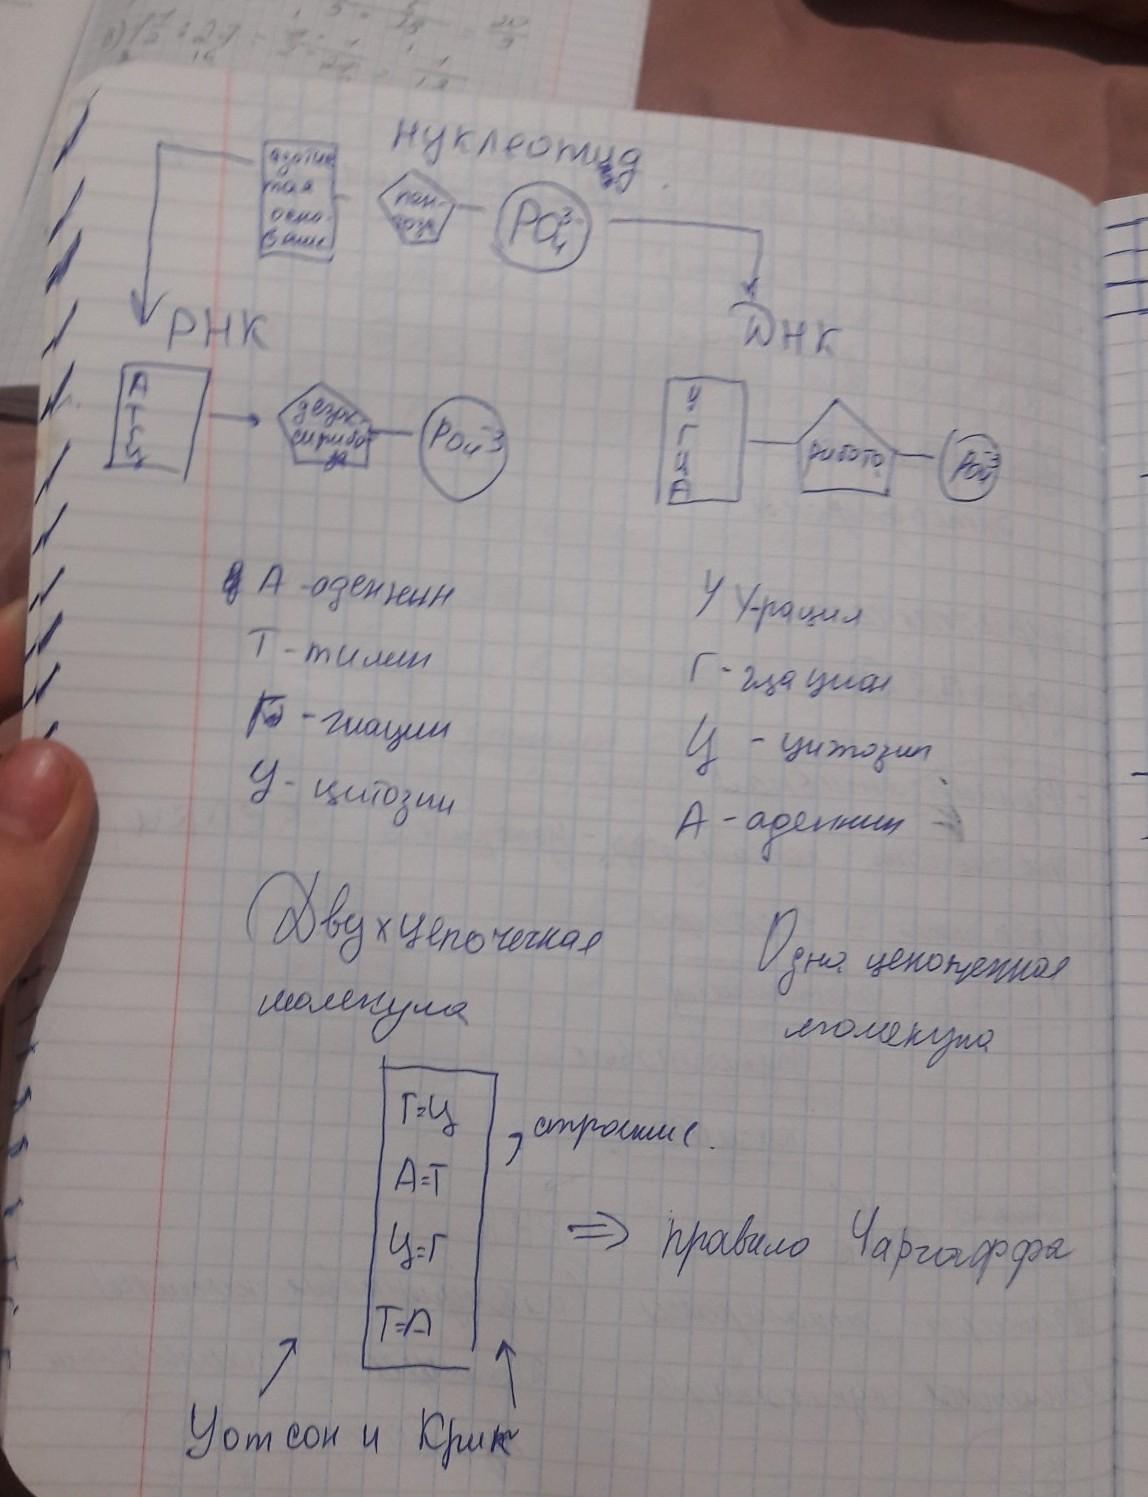 нуклеотид
азотис
тая
осно-
вание
пен-
тоза
PO₄³⁻
РНК
ДНК
А
Т
Г
Ц
дезок-
сирибо
за
PO₄⁻³
У
Г
Ц
А
рибоза
PO₄⁻³
А - аденнин
У У-рацил
Т - тимин
Г -
- гиацин
Ц - цитозин
У - цитозин
А - аденнин
Двухцепочечная
молекула
Одна цепочечная
молекула
Г=Ц
А=Т
Ц=Г
Т=А
, строение.
⇒ правило Чаргаффа
Уотсон и Крик